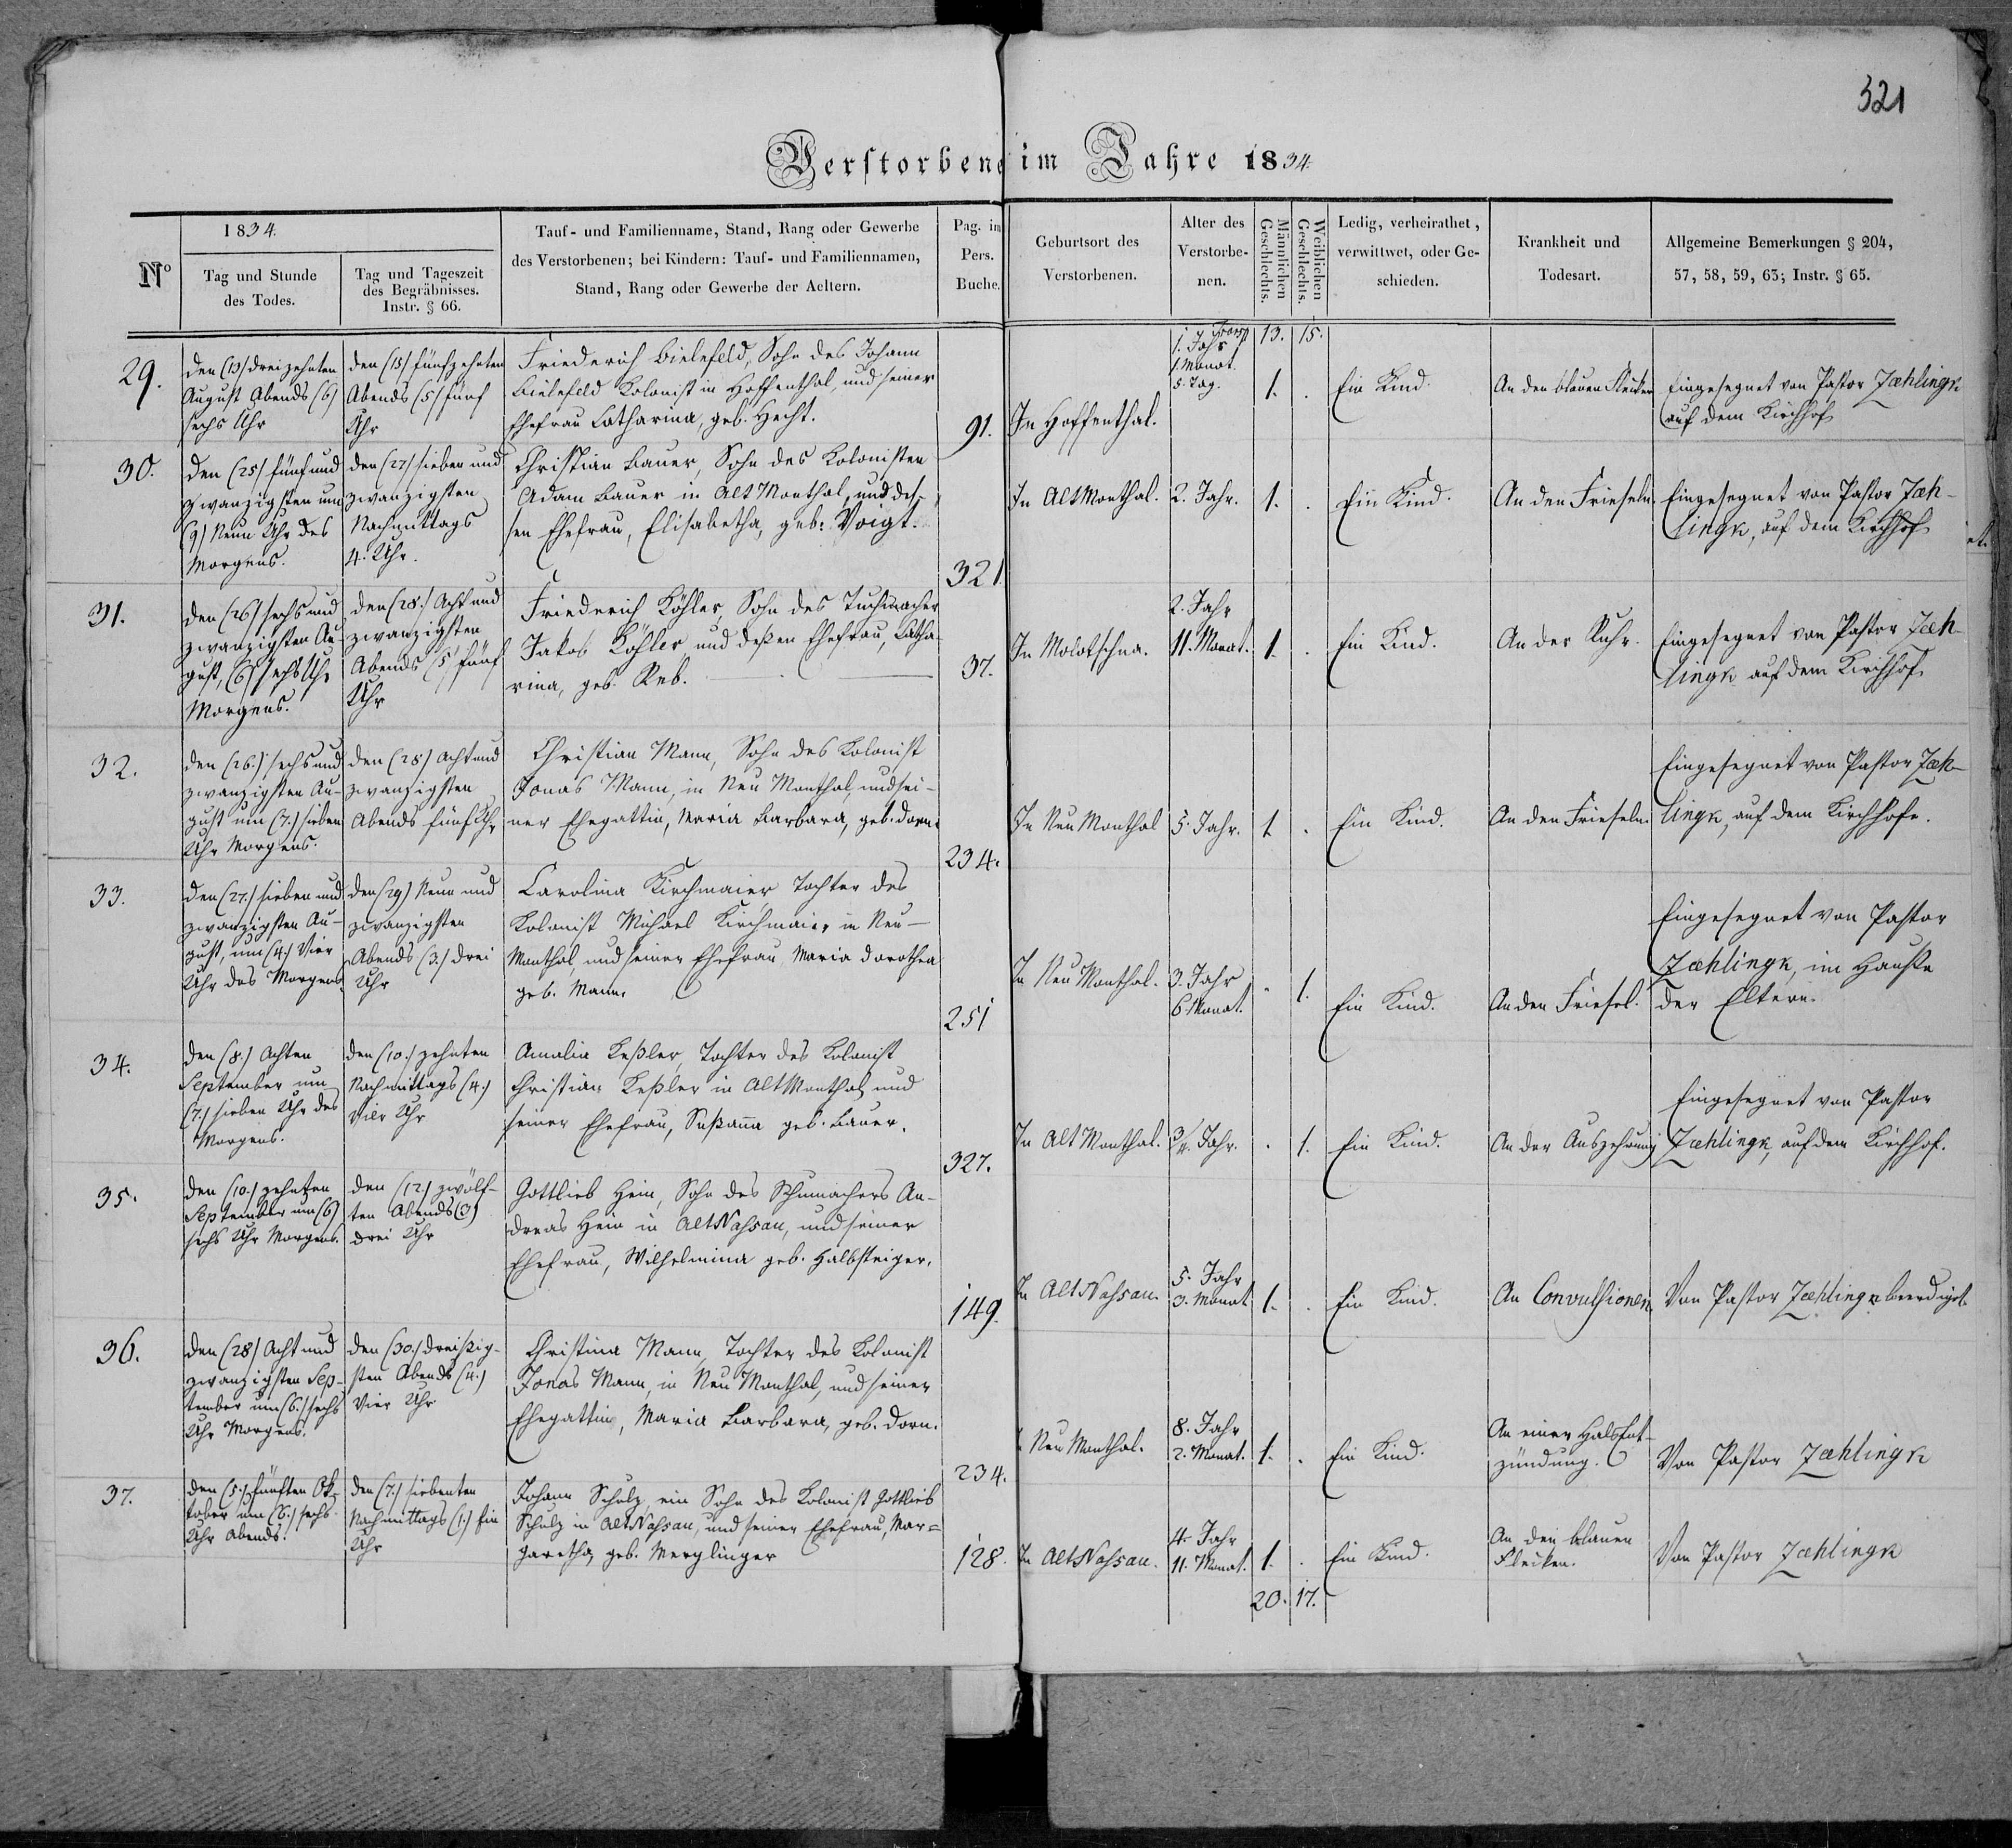 321
Verstorbene im Jahre 1834.
Nº
1834.
Tag und Stunde
des Todes.
Tag und Tageszeit
des Begräbnisses.
Instr. § 66.
Tauf- und Familienname, Stand, Rang oder Gewerbe
des Verstorbenen; bei Kindern: Tauf- und Familiennamen,
Stand, Rang oder Gewerbe der Aeltern.
Pag. im
Pers.
Buche.
Geburtsort des
Verstorbenen.
Alter des
Verstorbe-
nen.
Männlichen
Geschlechts.
Weiblichen
Geschlechts.
Ledig, verheirathet,
verwittwet, oder Ge-
schieden.
Krankheit und
Todesart.
Allgemeine Bemerkungen § 204,
57, 58, 59, 63; Instr. § 65.
Transp
13. 15.
29.
den (13) dreizehnten
August Abends (6)
sechs Uhr
den (15) fünfzehnten
Abends (5) fünf
Uhr
Friederich Bielefeld, Sohn des Johann
Bielefeld Kolonist in Hoffenthal, und seiner
Ehefrau Catharina, geb. Hecht.
91.
In Hoffenthal.
1. Jahr
1. Monat.
5. Tag.
1. .
Ein Kind.
An den blauen Flecken
Eingesegnet von Pastor Zæhlingk
auf dem Kirchhof
30.
den (25) fünf und
zwanzigsten um
(9) Neun Uhr des
Morgens.
den (27) sieben und
zwanzigsten
Nachmittags
4. Uhr.
Christian Bauer, Sohn des Kolonisten
Adam Bauer in Alt Monthal, und des-
sen Ehefrau, Elisabetha, geb: Voigt.
321.
In Alt Monthal.
2. Jahr.
1. .
Ein Kind.
An den Frieseln.
Eingesegnet von Pastor Zæh-
lingk, auf dem Kirchhof
31.
den (26) sechs und
zwanzigsten Au-
gust, (6) sechs Uhr
Morgens.
den (28.) Acht und
zwanzigsten
Abends (5) fünf
Uhr
Friederich Köhler, Sohn des Tuchmacher
Jakob Köhler und deßen Ehefrau, Catha-
rina, geb. Reb.
37.
In Molotschna.
2. Jahr
11. Monat.
1. .
Ein Kind.
An der Ruhr.
Eingesegnet von Pastor Zæh-
lingk auf dem Kirchhof
32.
den (26.) sechs und
zwanzigsten Au-
gust um (7.) sieben
Uhr Morgens.
den (28) Acht und
zwanzigsten
Abends fünf Uhr
Christian Mann, Sohn des Kolonist
Jonas Mann, in Neu Monthal, und sei-
ner Ehegattin, Maria Barbara, geb. Dorn.
234.
In Neu Monthal
5. Jahr.
1. .
Ein Kind.
An den Frieseln.
Eingesegnet von Pastor Zæh-
lingk, auf dem Kirchhofe.
33.
den (27.) sieben und
zwanzigsten Au-
gust, um (4.) Vier
Uhr des Morgens.
den (29) Neun und
zwanzigsten
Abends (3.) drei
Uhr
Carolina Kirchmaier, Tochter des
Kolonist Michael Kirchmaier in Neu-
Monthal, und seiner Ehefrau Maria Dorothea
geb. Mann.
251
In Neu Monthal.
3. Jahr
6. Monat.
. 1.
Ein Kind.
An den Friesel.
Eingesegnet von Pastor
Zæhlingk, im Hause
der Eltern.
34.
den (8.) Achten
September um
(7.) sieben Uhr des
Morgens.
den (10.) zehnten
Nachmittags (4.)
Vier Uhr
Amalia Keßler, Tochter des Kolonist
Christian Keßler in Alt Monthal, und
seiner Ehefrau, Susanna geb. Bauer.
327.
In Alt Monthal.
3/4 Jahr.
. 1.
Ein Kind.
An der Auszehrung
Eingesegnet von Pastor
Zæhlingk, auf dem Kirchhof.
35.
den (10.) zehnten
September um (6)
sechs Uhr Morgens.
den (12.) zwölf-
ten Abends (3)
drei Uhr
Gottlieb Hein, Sohn des Schumachers An-
dreas Hein in Alt Nassau, und seiner
Ehefrau, Wilhelmina geb. Halbsteiger.
149.
In Alt Nassau.
5. Jahr
3. Monat
1. .
Ein Kind.
An Convulsionen
Von Pastor Zæhlingk beerdigt.
36.
den (28) Acht und
zwanzigsten Sep-
tember um (6.) sechs
Uhr Morgens.
den (30.) dreißig-
sten Abends (4.)
Vier Uhr
Christina Mann, Tochter des Kolonist
Jonas Mann, in Neu Monthal, und seiner
Ehegattin, Maria Barbara, geb. Dorn.
234.
Neu Monthal.
8. Jahr
2. Monat.
1. .
Ein Kind.
An einer Halsent-
zündung.
Von Pastor Zæhlingk
37.
den (5.) fünften Ok-
tober um (6.) sechs
Uhr Abends.
den (7.) siebenten
Nachmittags (1.) Ein
Uhr
Johann Schulz, ein Sohn des Kolonist Gottlieb
Schulz in Alt Nassau, und seiner Ehefrau, Mar=
garetha, geb. Merglinger
128.
In Alt Nassau.
4. Jahr
11. Monat.
1. .
Ein Kind.
An den blauen
Flecken.
Von Pastor Zæhlingk
20. 17.